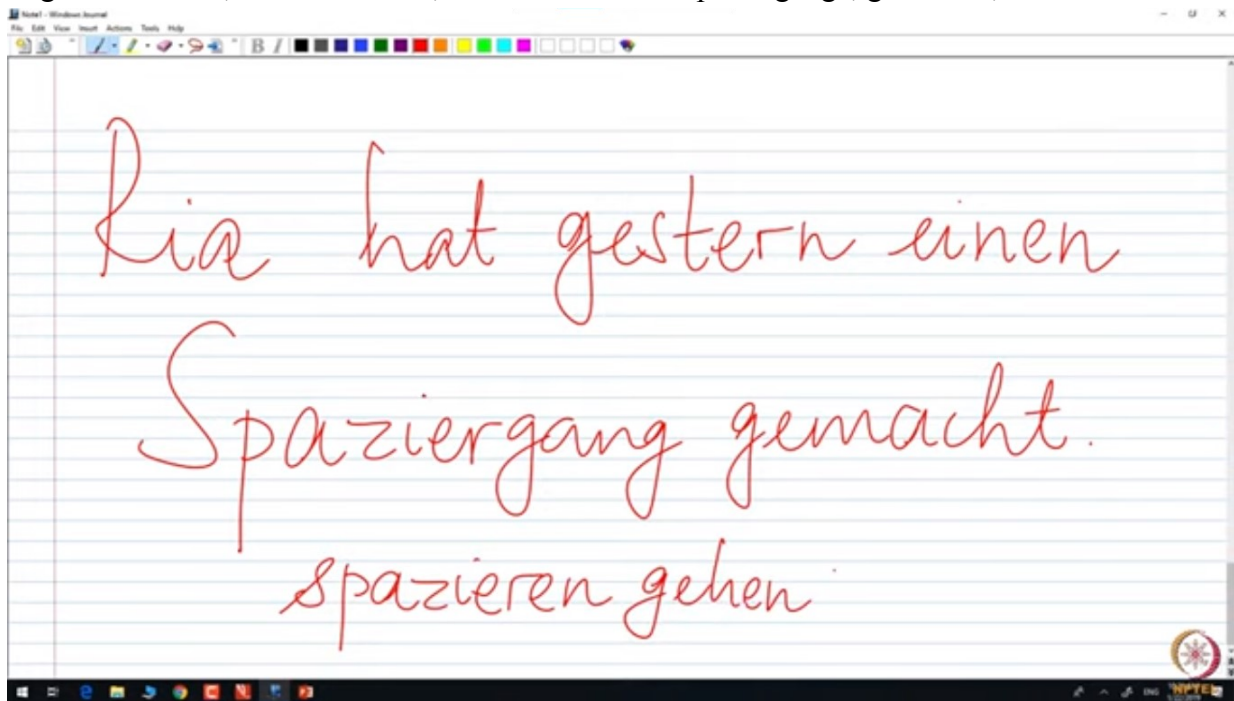 Note1 - Windows Journal
File Edit View Insert Actions Tools Help
B I
Ria hat gestern einen
Spaziergang gemacht.
spazieren gehen
ENG
NPTEL